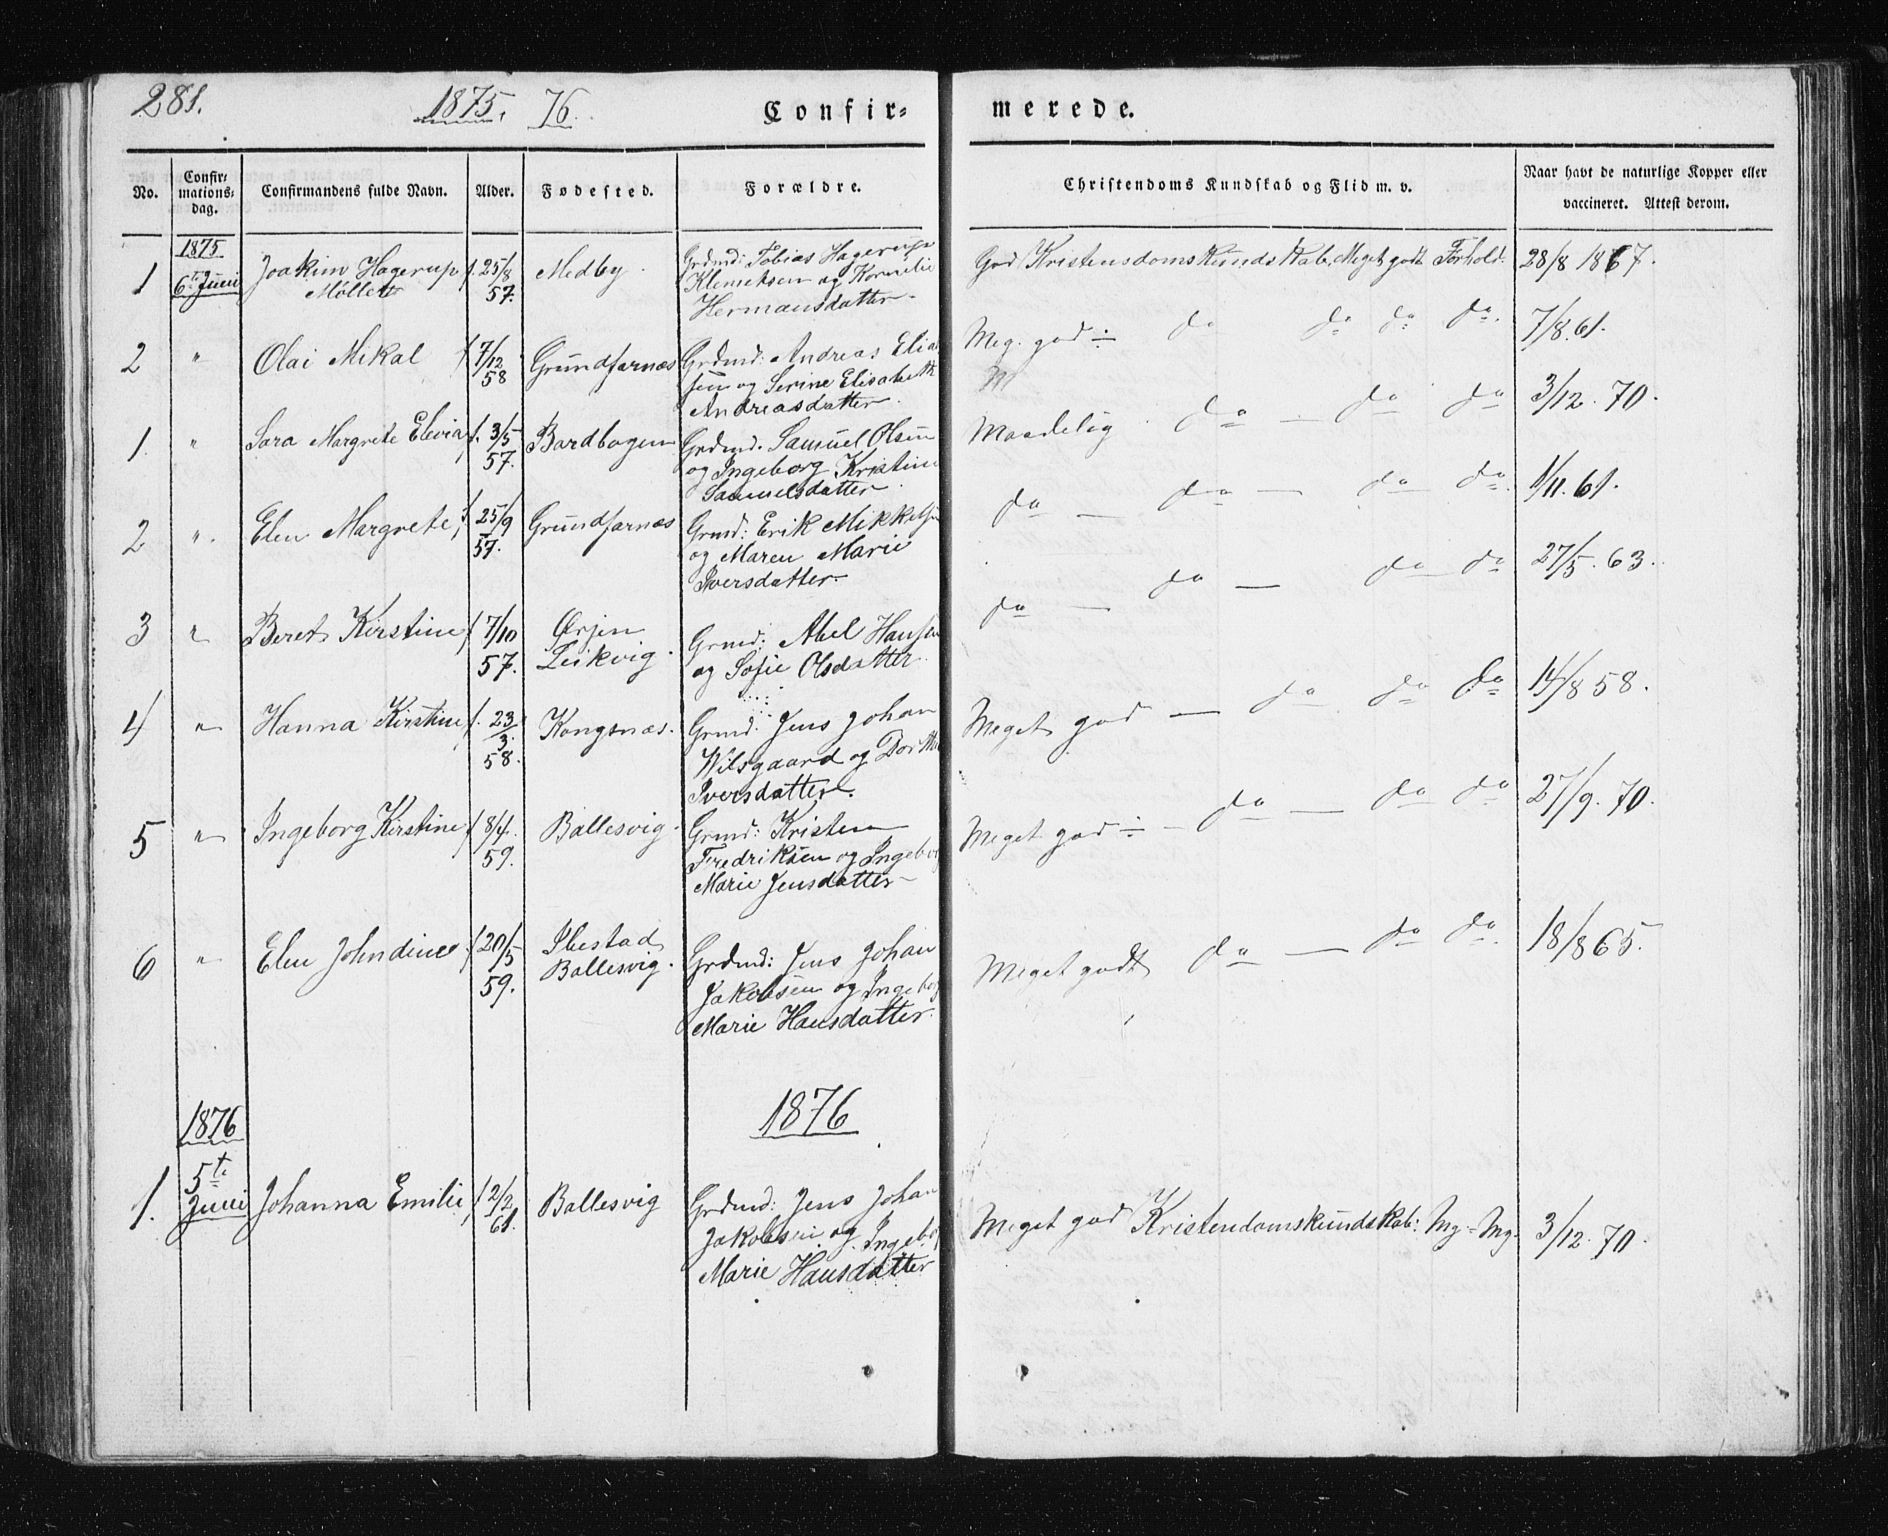 281.
1875. 76.
Confir-
merede.
No.
Confir-
mations-
dag.
Confirmandens fulde Navn.
Alder.
Fødested.
Forældre.
Christendoms Kundskab og Flid m. v.
Naar havt de naturlige Kopper eller
vaccineret. Attest derom.
1875
1 6te Juni Joakim Hagerup f. 25/8 Medby. Grdmd: Tobias Hagerup God Kristensdomskundskab, Meget godt Forhold. 28/8 1867.
Møller 57. Klemetsen og Kornelie
Hermansdatter.
2 " Olai Mikal f 7/12 Grundfarnæs Grdmd: Andreas Elia Meg. god ÷ do do do do. 7/8.61.
58 sen og Serine Elisabeth
Andreasdatter.
1. " Sara Margrete Elevia, f. 3/5 Bardbogen Grdmd. Samuel Olsen Maadelig do — do do 3/12. 70.
57. og Ingeborg Kristine
Samuelsdatter.
2 " Elen Margrete, f 25/9 Grundfarnæs Grmd: Erik Mikkelsen do — do — do do. 1/11. 61.
57. og Maren Marie
Iversdatter.
3 " Beret Kirstine, f 7/10 Ørjen Grmd: Abel Hansen do — do — do do 27/5. 63.
57. Leikvig. og Sofie Olsdatter
4 " Hanna Kirstine f. 23/3. Kongsnæs. Grmd: Jens Johan Meget god — do do do 14/8 58.
58. Wilsgaard og Dorthea
Iversdatter.
5 " Ingeborg Kirstine, f 8/4. Ballesvig. Grmd: Kristen Meget god ÷ — do — do do 27/9. 70.
59. Fredriksen og Ingeborg
Marie Jensdatter
6 " Elen Johndine f 20/5 Ibestad Grdmd: Jens Johan Meget godt do — do do. 18/8 65.
59. Ballesvig. Jakobsen og Ingeborg
Marie Hansdatter.
1876
1876
5te
1. Juni Johanna Emilie, f 2/2 Ballesvig Grdmd: Jens Johan Meget god Kristendomskundskab: Mg - Mg. 3/12. 70.
61. Jakobsen og Ingeborg
Marie Hansdatter